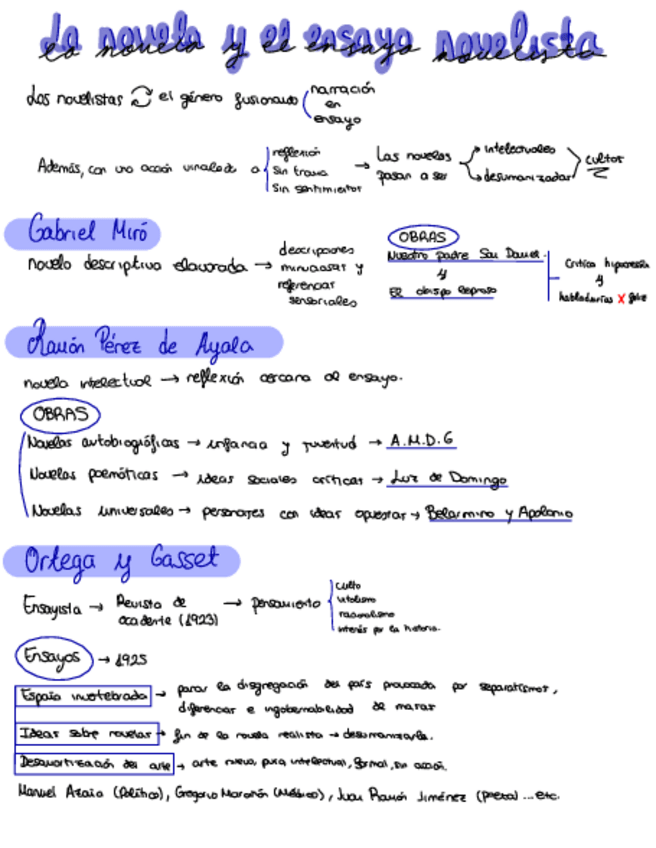 La novela y el ensayo novelista
Los novelistas el género fusionando narración en ensayo
Además, con una acción vinculada a reflexión sin trama sin sentimientos → Las novelas pasan a ser → intelectuales → desumanizadas cultos
Gabriel Miró
novela descriptiva elavorada → descripciones minuciosas y referencias sensoriales
OBRAS
Nuestro padre San Daniel.
y
El obispo leproso
Crítica hipocresía
y
habladurías X
Ramón Pérez de Ayala
novela intelectual → reflexión cercana al ensayo.
OBRAS
Novelas autobiográficas → infancia y juventud → A.M.D.G
Novelas poemáticas → ideas sociales críticas → Luz de Domingo
Novelas universales → personajes con ideas opuestas → Belarmino y Apolonio
Ortega y Gasset
Ensayista → Revista de occidente (1923) → pensamiento
culto
vitalismo
racionalismo
interés por la historia.
Ensayos → 1925
España invertebrada → parar la disgregación del país provocada por separatismos,
diferencias e ingobernabilidad de masas
Ideas sobre novelas → fin de la novela realista → desumanizarla.
Desamortización del arte → arte nuevo, pura intelectual, formal, sin acción.
Manuel Azaña (Político), Gregorio Marañón (Médico), Juan Ramón Jiménez (poeta) ... etc.